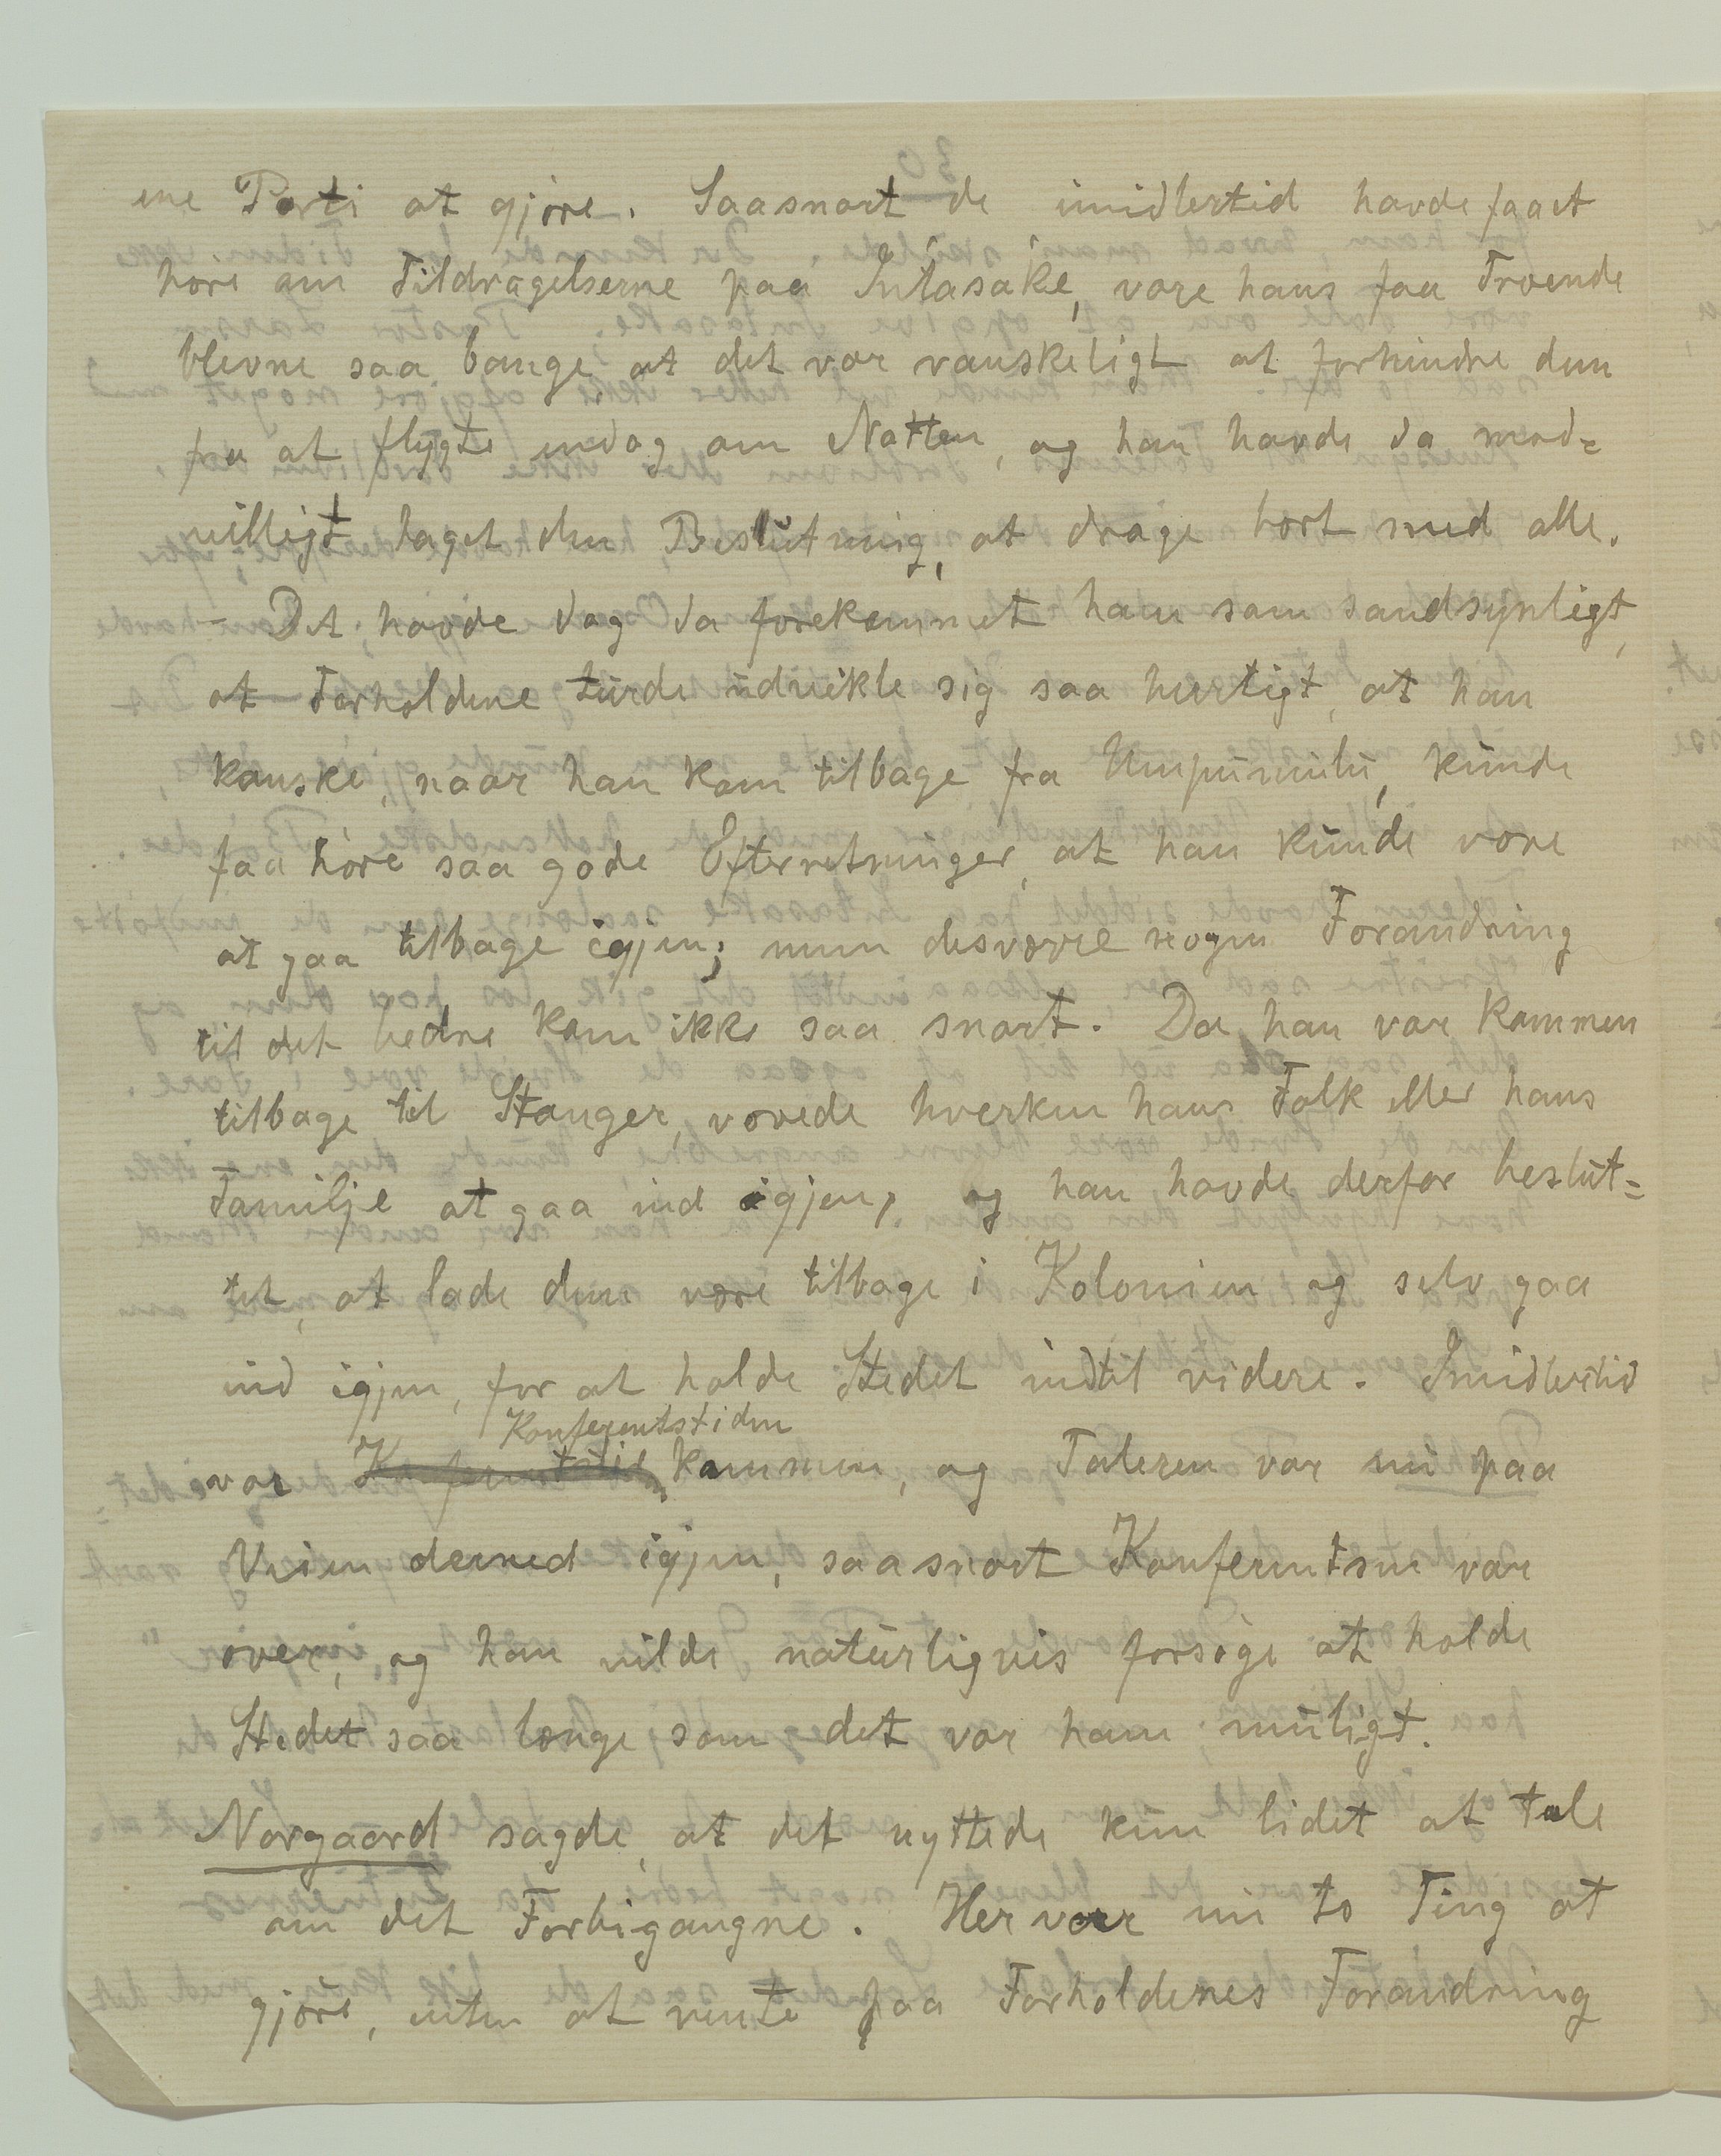 ene Parti at gjøre. Saasnart de imidlertid havde faaet
høre om Tildragelserne paa Intasake, vare hans faa Troende
blevne saa bange at det var vanskeligt at forhindre dem
fra at flygte endog om Natten, og han havde da mod=
villigt taget den Beslutning, at drage bort med alle.
- Det havde dog da forekommet ham som sandsynligt,
at Forholdene turde udvikle sig saa hurtigt, at han
kanske, naar han kom tilbage fra Umpumulu, kunde
faa høre saa gode Efterretninger, at han kunde vove
at gaa tilbage igjen; men desværre nogen Forandring
til det bedre kom ikke saa snart. Da han var kommen
tilbage til Stanger, vovede hverken hans Folk eller hans
Familje at gaa ind igjen, og han havde derfor beslut=
tet, at lade dem være tilbage i Kolonien og selv gaa
ind igjen, for at holde Stedet indtil videre. Imidlertid
Konferentstiden
var kommen, og Taleren var nu paa
Veien derned igjen, saasnart Konferentsen var
over, og han vilde naturligvis forsøge at holde
Stedet saa længe som det var ham muligt.
Norgaard sagde, at det nyttede kun lidet at tale
om det Forbigangne. Her var nu to Ting at
gjøre, enten at vente paa Forholdenes Forandring